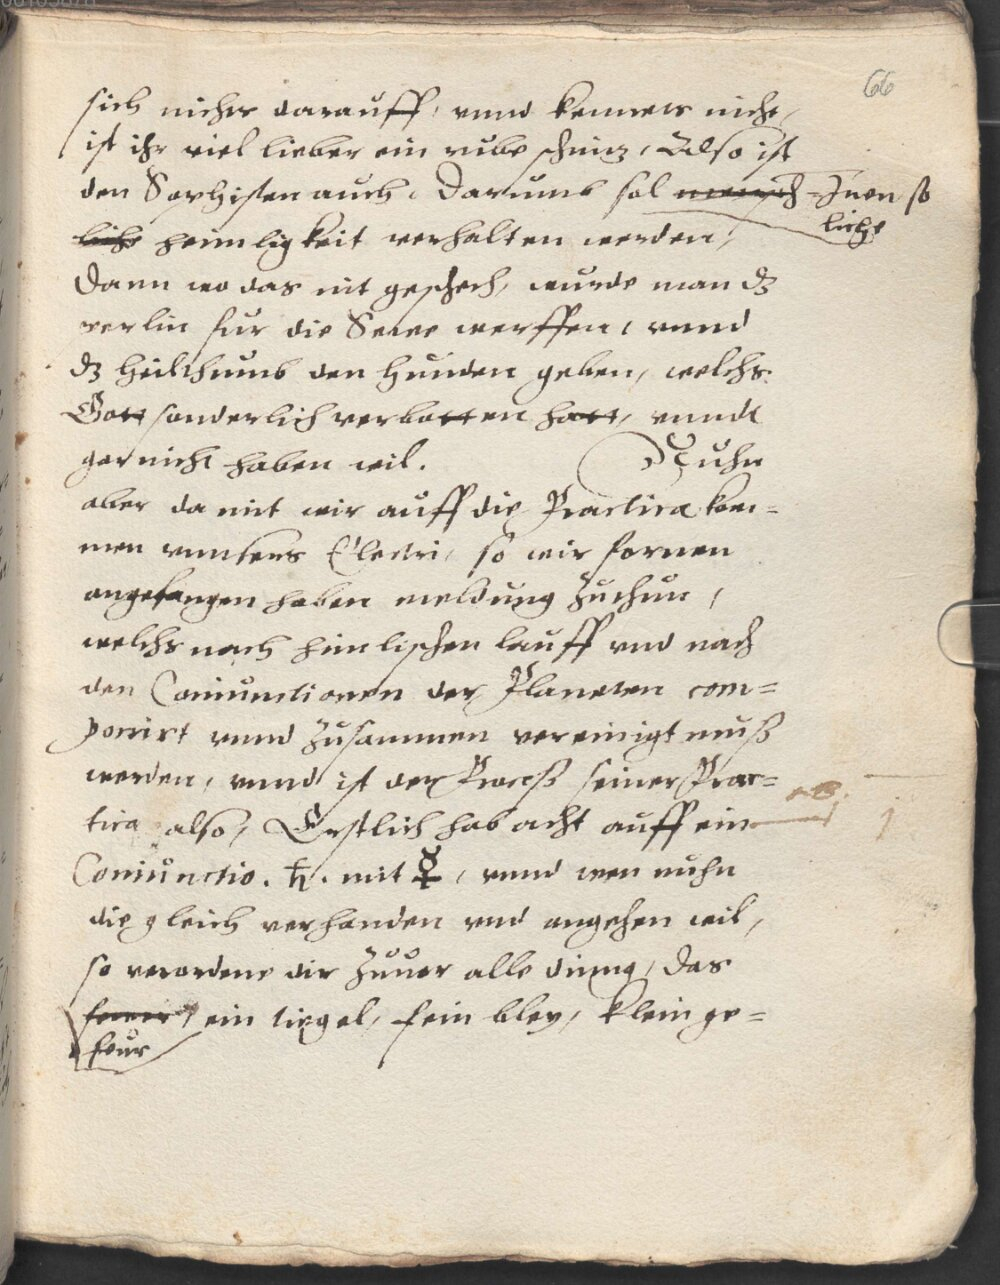 66
sich nichts darauff, vnnd kennets nicht,
ist ihr viel lieber ein rube schnitz, Also ist
den Sophisten auch. Darumb sol Inen so
liche heimligkeit verhalten werden,
Dann wo das nit geschech, wurde man dz
perlin fur die Sewe werffen, vnnd
dz heilthumb den hunden geben, welchs
Gott sonderlich verbotten hatt, vnndt
gar nicht haben wil. Nuhn
aber damit wir auff die Practica kom=
men vnsers Electri, so wir fornen
angefangen haben meldung zuthun,
welchs nach himlischen lauff vnd nach
den Coniunctionen der Planeten com=
ponirt vnnd zusammen vereinigt muß
werden, vnnd ist der Proceß seiner Prac=
tica also, Erstlich hab acht auff ein
Coniunctio. ♄. mit ☿, vnnd wen nuhn
die gleich verhanden vnd angehen wil,
so verordene dir zuuor alle dinng, das
feur ein tiegel, fein bley, klein ge=